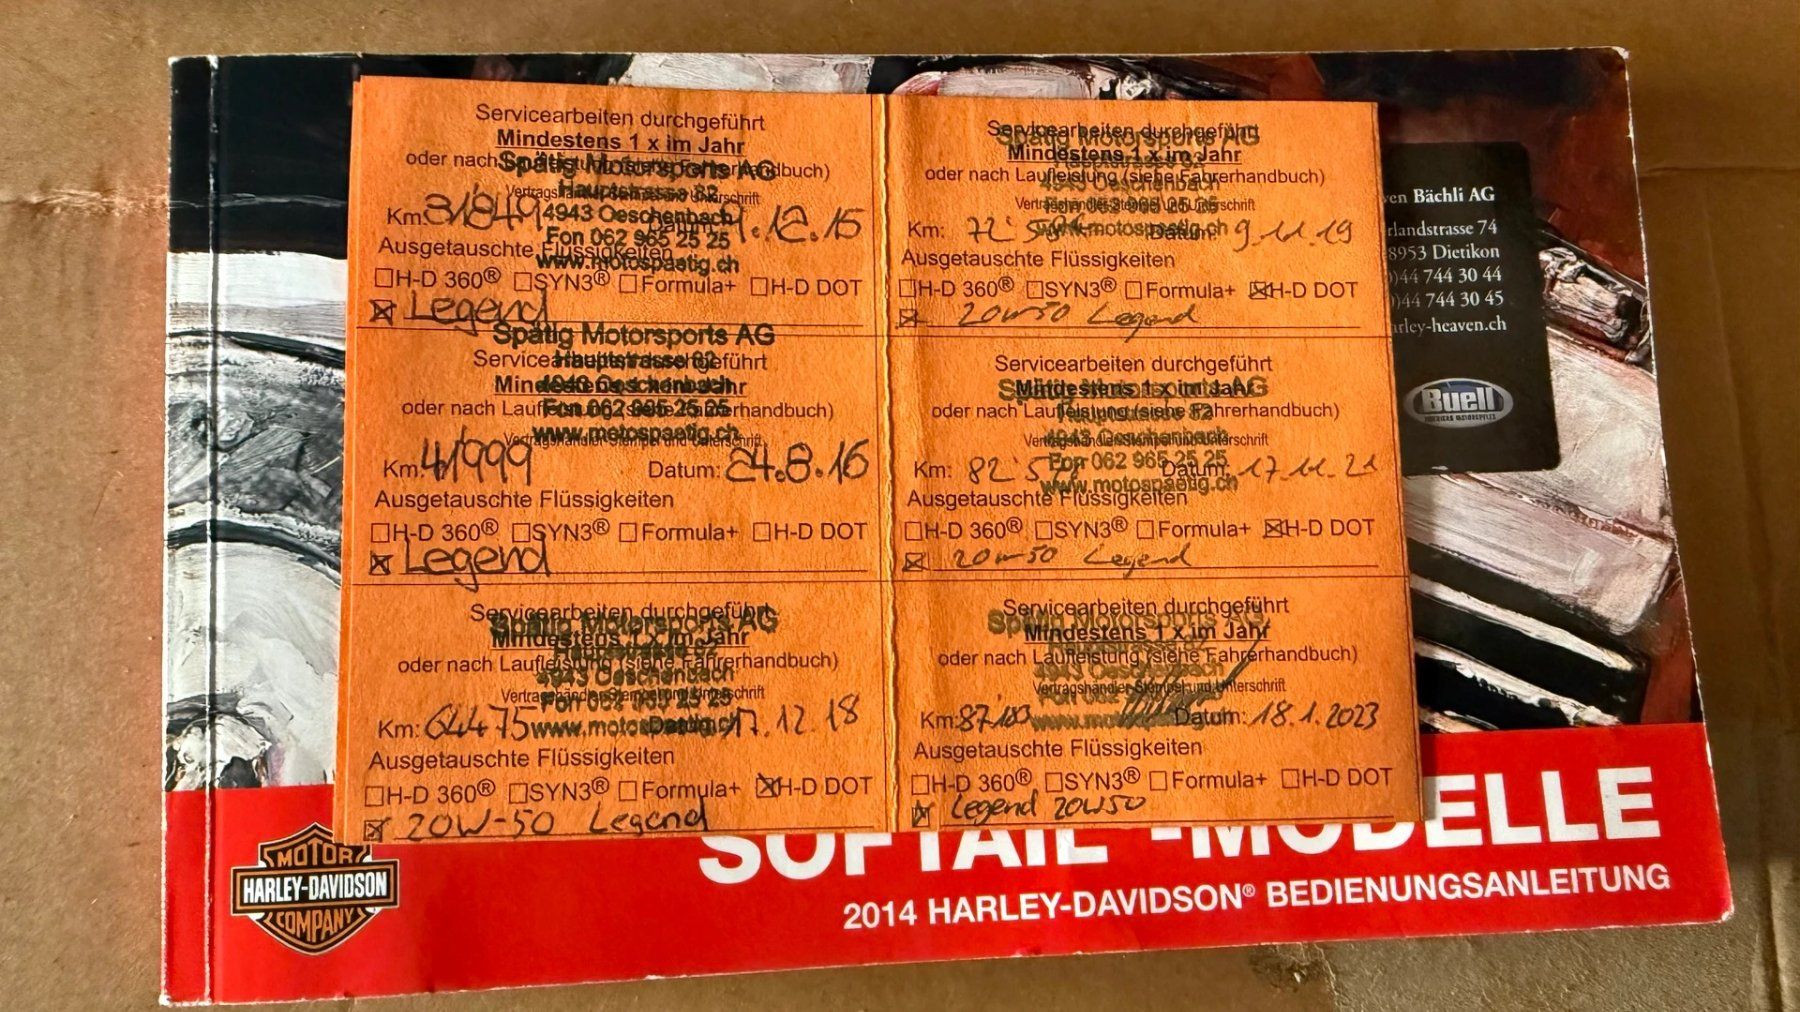 Servicearbeiten durchgeführt
Mindestens 1 x im Jahr
oder nach Laufleistung (siehe Fahrerhandbuch)
Spätig Motorsports AG
Hauptstrasse 82
Vertragshändler-Stempel und Unterschrift
4943 Oeschenbach
Km: 31849 Datum: 12.15
Fon 062 965 25 25
Ausgetauschte Flüssigkeiten
www.motospaetig.ch
☐H-D 360® ☐SYN3® ☐Formula+ ☐H-D DOT
☒ Legend
Spätig Motorsports AG
Servicearbeiten durchgeführt
Hauptstrasse 82
Mindestens 1 x im Jahr
4943 Oeschenbach
oder nach Laufleistung (siehe Fahrerhandbuch)
Fon 062 965 25 25
Vertragshändler-Stempel und Unterschrift
www.motospaetig.ch
Km: 41999 Datum: 24.8.16
Ausgetauschte Flüssigkeiten
☐H-D 360® ☐SYN3® ☐Formula+ ☐H-D DOT
☒ Legend
Servicearbeiten durchgeführt
Spätig Motorsports AG
Mindestens 1 x im Jahr
Hauptstrasse 82
oder nach Laufleistung (siehe Fahrerhandbuch)
4943 Oeschenbach
Vertragshändler-Stempel und Unterschrift
Fon 062 965 25 25
Km: 64475 Datum: 17.12.18
www.motospaetig.ch
Ausgetauschte Flüssigkeiten
☐H-D 360® ☐SYN3® ☐Formula+ ☒H-D DOT
☒ 20W-50 Legend
Servicearbeiten durchgeführt
Spätig Motorsports AG
Mindestens 1 x im Jahr
Hauptstrasse 82
oder nach Laufleistung (siehe Fahrerhandbuch)
4943 Oeschenbach
Vertragshändler-Stempel und Unterschrift
Fon 062 965 25 25
Km: Datum: 9.11.19
www.motospaetig.ch
Ausgetauschte Flüssigkeiten
☐H-D 360® ☐SYN3® ☐Formula+ ☒H-D DOT
☒ 20W-50 Legend
Servicearbeiten durchgeführt
Mindestens 1 x im Jahr
Spätig Motorsports AG
oder nach Laufleistung (siehe Fahrerhandbuch)
Hauptstrasse 82
Vertragshändler-Stempel und Unterschrift
4943 Oeschenbach
Fon 062 965 25 25
Km: Datum: 17.11.21
www.motospaetig.ch
Ausgetauschte Flüssigkeiten
☐H-D 360® ☐SYN3® ☐Formula+ ☒H-D DOT
☒ 20W-50 Legend
Servicearbeiten durchgeführt
Spätig Motorsports AG
Mindestens 1 x im Jahr
oder nach Laufleistung (siehe Fahrerhandbuch)
4943 Oeschenbach
Vertragshändler-Stempel und Unterschrift
Km: 87'103 Datum: 18.1.2023
Ausgetauschte Flüssigkeiten
☐H-D 360® ☐SYN3® ☐Formula+ ☐H-D DOT
☒ Legend 20W50
Bächli AG
74
8953 Dietikon
44 744 30 44
44 744 30 45
rley-heaven.ch
Buell
SOFTAIL -MODELLE
2014 HARLEY-DAVIDSON® BEDIENUNGSANLEITUNG
MOTOR
HARLEY-DAVIDSON
COMPANY